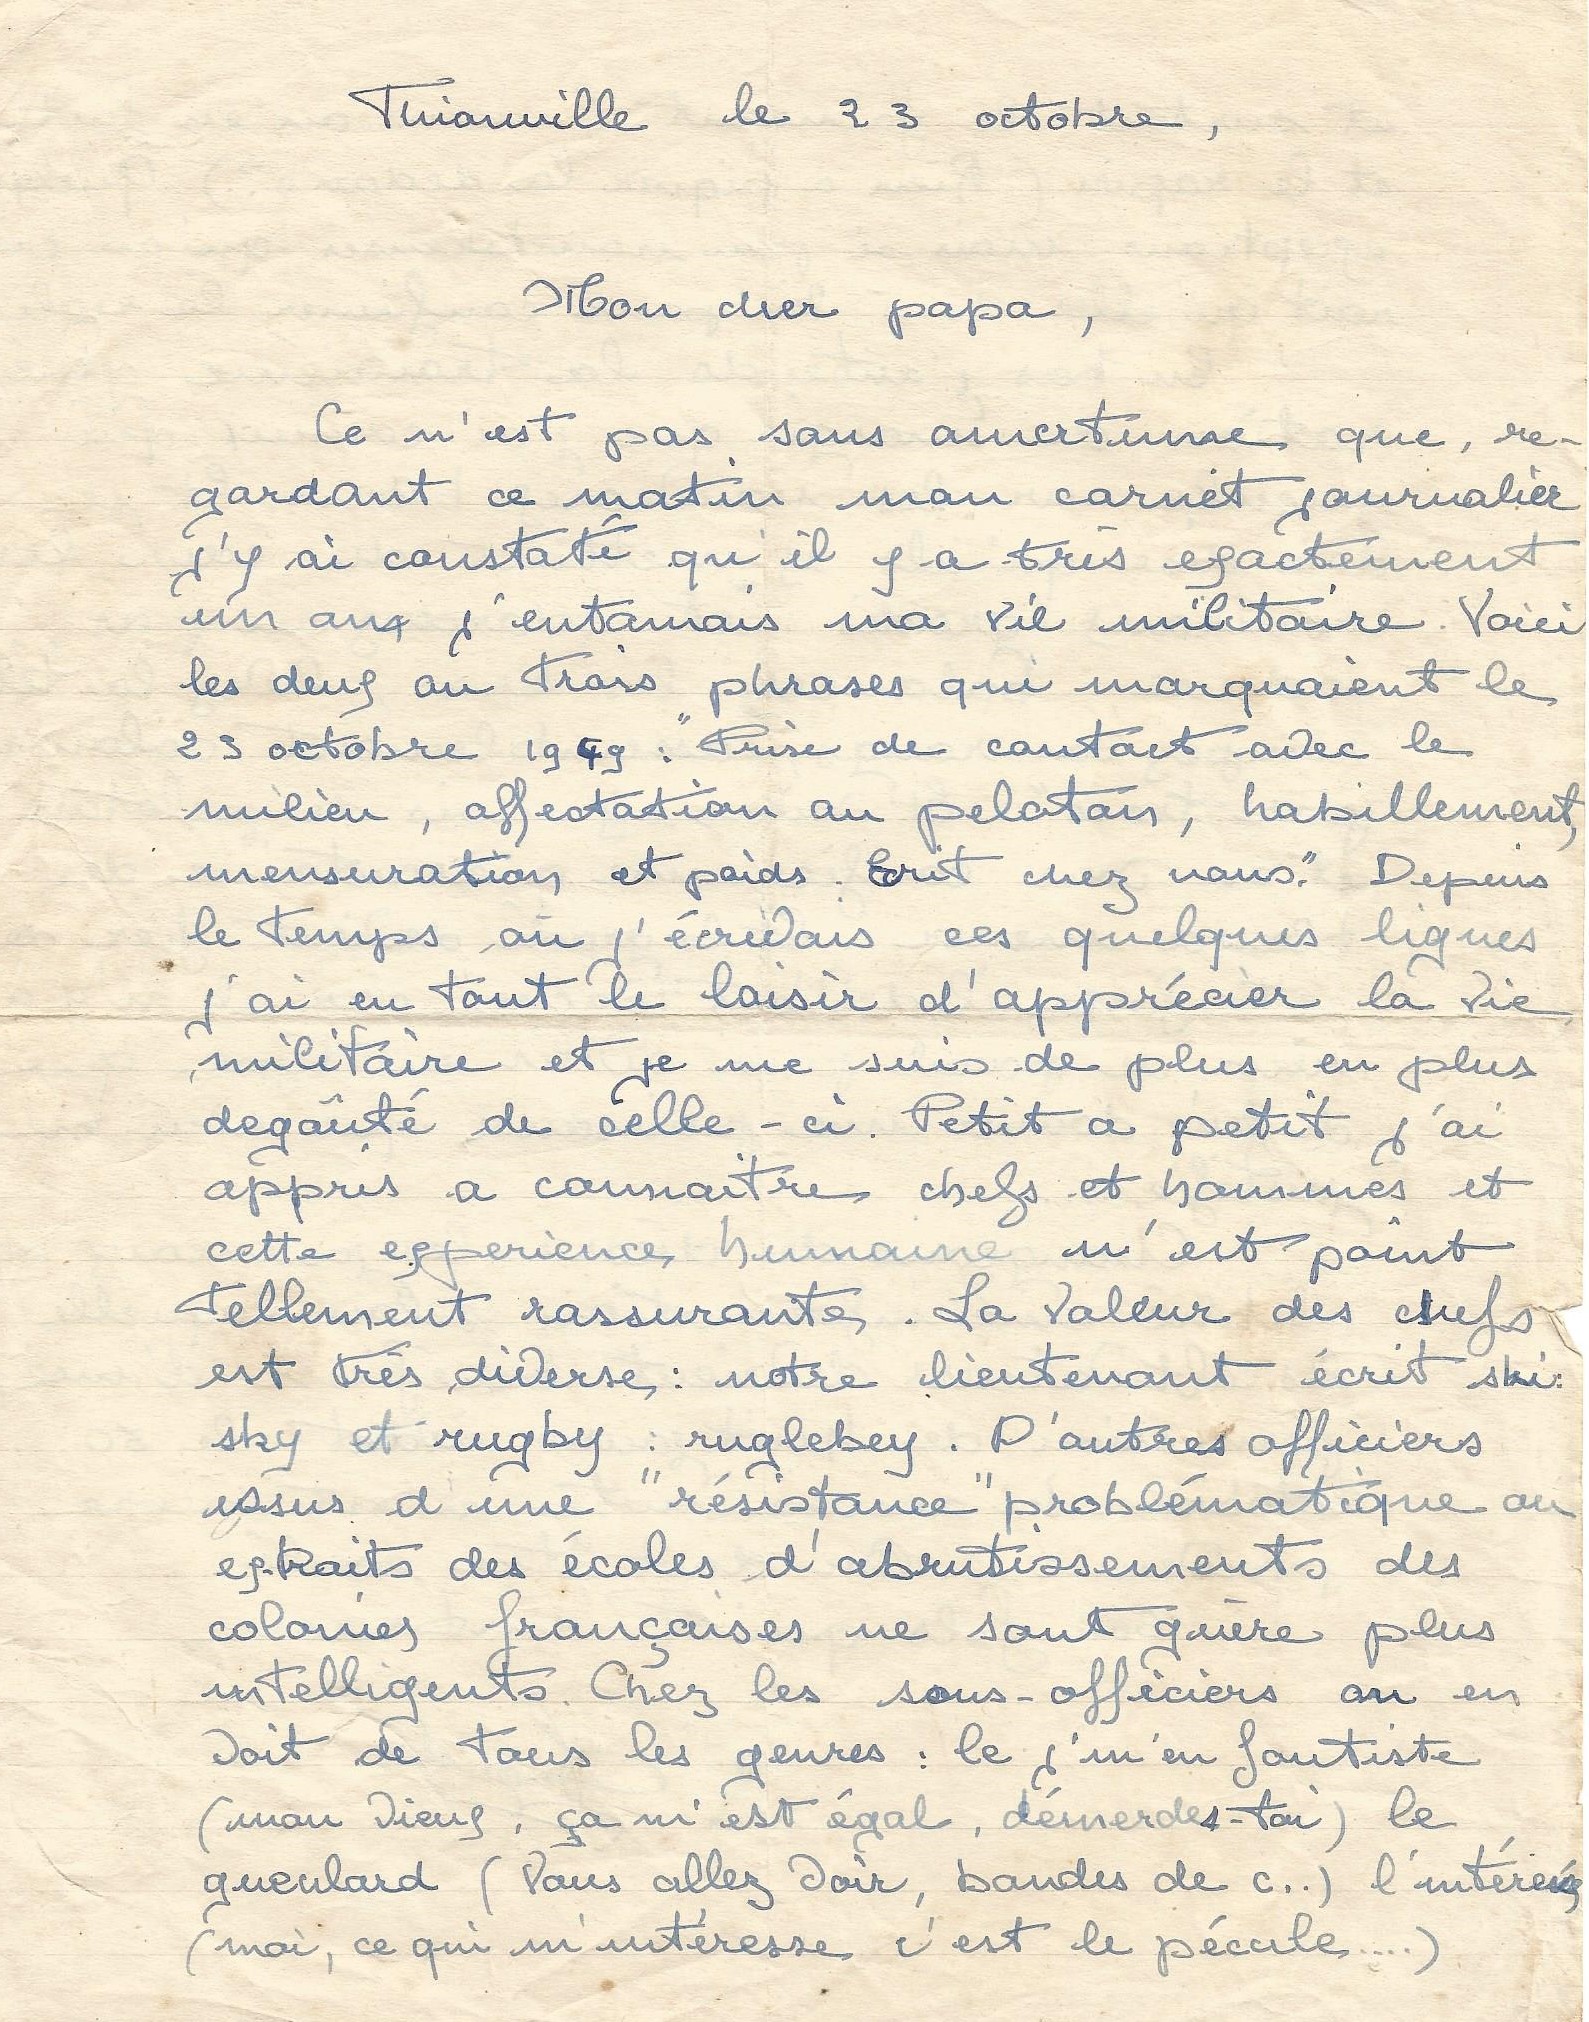 Thionville le 23 octobre,
Mon cher papa,
Ce n'est pas sans amertume que, re-
gardant ce matin mon carnet journalier
j'y ai constaté qu'il y a très exactement
un an j'entamais ma vie militaire. Voici
les deux ou trois phrases qui marquaient le
23 octobre 1949 : "Prise de contact avec le
milieu, affectation au peloton, habillement,
mensuration et poids. Ecrit chez nous." Depuis
le temps où j'écrivais ces quelques lignes
j'ai eu tout le loisir d'apprécier la vie
militaire et je me suis de plus en plus
degoûté de celle-ci. Petit a petit j'ai
appris a connaitre chefs et hommes et
cette experience humaine n'est point
tellement rassurante. La valeur des chefs
est très diverse : notre lieutenant écrit ski :
sky et rugby : ruglebey. D'autres officiers
issus d'une "résistance" problématique ou
extraits des écoles d'abrutissements des
colonies françaises ne sont guère plus
intelligents. Chez les sous-officiers on en
voit de tous les genres : le j'm'en foutiste
(mon vieux, ça m'est égal, démerdes-toi) le
gueulard (vous allez voir, bandes de c..)
(moi, ce qui m'intéresse c'est le pécule....)